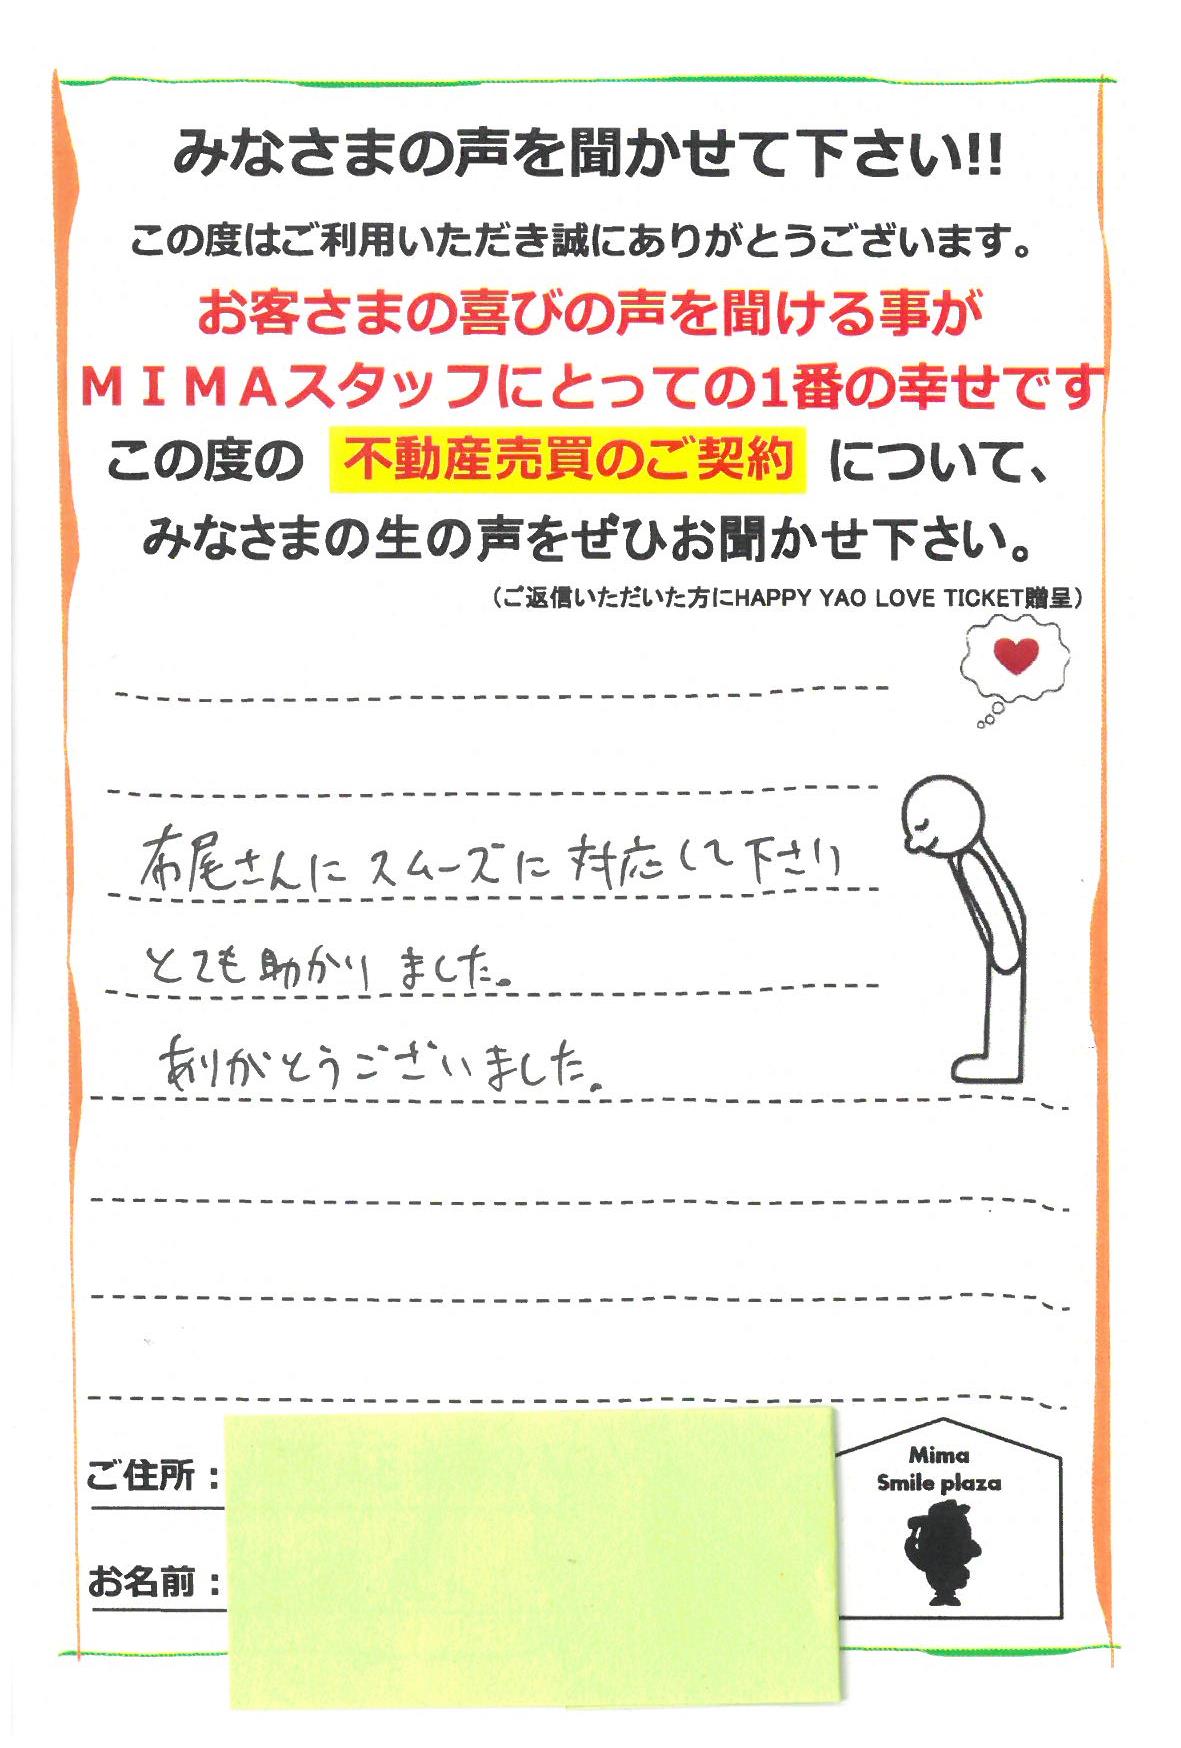 みなさまの声を聞かせて下さい!!
この度はご利用いただき誠にありがとうございます。
お客さまの喜びの声を聞ける事が
ＭＩＭＡスタッフにとっての1番の幸せです
この度の 不動産売買のご契約 について、
みなさまの生の声をぜひお聞かせ下さい。
（ご返信いただいた方にHAPPY YAO LOVE TICKET贈呈）
布尾さんにスムーズに対応して下さり
とても助かりました。
ありがとうございました。
ご住所：
お名前：
Mima
Smile plaza